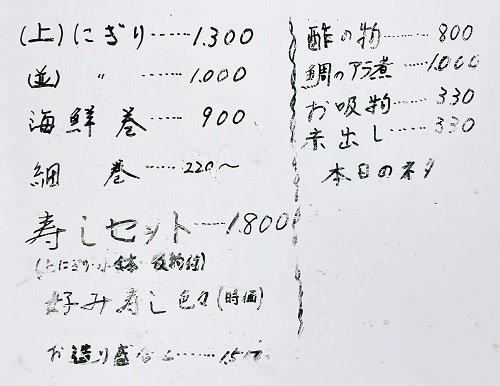 (上)にぎり……1.300
(並) 〃 ……1.000
海鮮巻……900
細巻……220〜
寿しセット……1.800
(上にぎり・小鉢 吸物付)
好み寿し色々(時価)
お造り盛合せ……1500
酢の物……800
鯛のアラ煮……1.000
お吸物……330
赤出し……330
本日のネタ